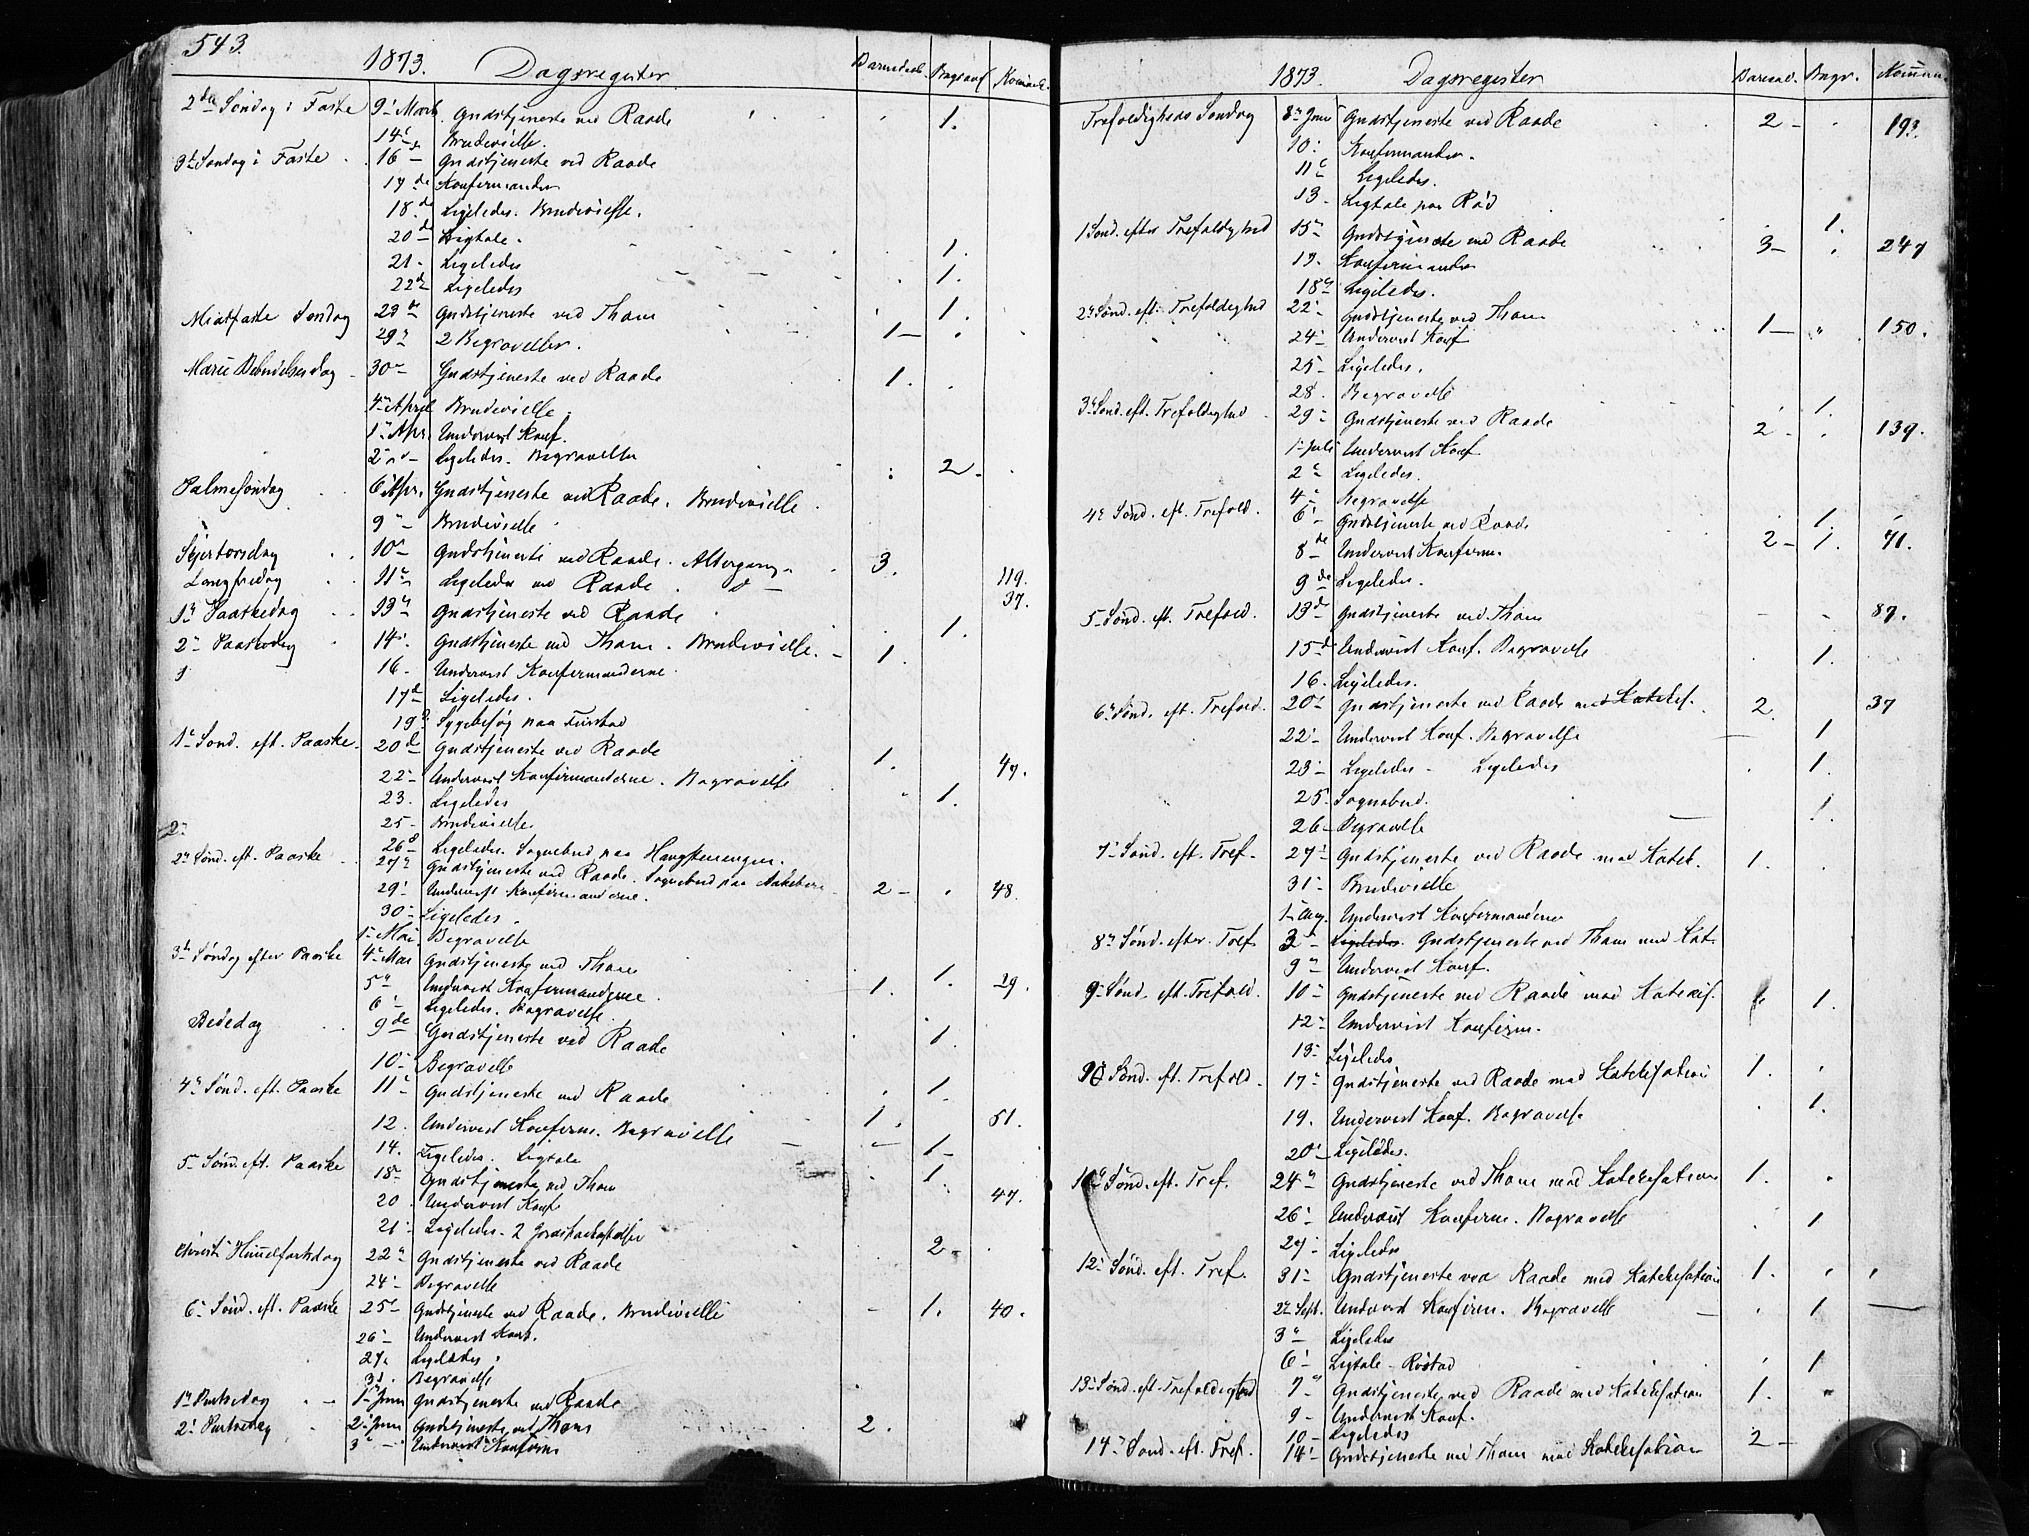 543.
1873. Dagsregister Barnedaab. Begravel. Kommunic.
2den Søndag i Faste 9' Marts Gudstjeneste ved Raade 1.
14de Brudevielse.
3de Søndag i Faste 16 Gudstjeneste ved Raade
17de Konfirmander
18de Ligeledes. Brudevielse.
20de Ligtale. 1.
21 Ligeledes 1.
22de Ligeledes 1.
Midfaste Søndag 23de Gudstjeneste ved Thom 1 —
29de 2 Begravelser.
Mariæ Bebudelsesdag 30 Gudstjeneste ved Raade 1.
4de April Brudevielse.
1' Apr. Undervist Konf.
2 Ligeledes. Begravelse 2 -
Palmesøndag 6 Apr. Gudstjeneste ved Raade. Brudevielse
9 Brudevielse
Skjertorsdag 10 Gudstjeneste ved Raade. Altergang 3. 119.
Langfredag 11 Ligeledes ved Raade. d — 37.
1' Paaskedag 13 Gudstjeneste ved Raade 1.
2 Paaskedag 14 Gudstjeneste ved Thom. Brudevielse. 1.
16 Undervist Konfirmanderne
17de Ligeledes.
19 Sygebesøg paa Fuglstad
1' Sønd. eft. Paaske. 20de Gudstjeneste ved Raade 1. 47.
22 Undervist Konfirmanderne. Begravelse 1.
23. Ligeledes
25 Brudevielse
26 Ligeledes. Sognebud paa
2' Sønd. eft. Paaske 27 Gudstjeneste ved Raade. Sognebud paa 2 - 48.
29 Undervist Konfirmanderne.
30 Ligeledes.
1' Mai Begravelse
3de Søndag efter Paaske 4 Mai Gudstjeneste ved Thom 1. 1. 29.
5 Undervist Konfirmanderne
6 Ligeledes. Begravelse 1.
Bededag 9de Gudstjeneste ved Raade
10 Begravelse 1.
4' Sønd. eft. Paaske 11 Gudstjeneste ved Raade 1. 51.
12. Undervist Konfirm. Begravelse 1 -
14. Ligeledes. Ligtale 1.
5' Sønd. eft. Paaske 18 Gudstjeneste ved Thom 47.
20 Undervist Konf
21 Ligeledes. 2 Jordspaakastelser 2 -
Christi Himmelfartsdag 22 Gudstjeneste ved Raade
24 Begravelse 1.
6' Sønd. eft. Paaske 25 Gudstjeneste ved Raade. Brudevielse 40.
26 Undervist Konf.
27. Ligeledes
31. Begravelse
1' Pintsedag 1' Juni Gudstjeneste ved Raade
2' Pintsedag 2 Juni Gudstjeneste ved Thom 2.
3 Undervist Konfirm
1873. Dagsregister Barnedaab. Begr. Kommun
Trefoldigheds Søndag 8' Juni Gudstjeneste ved Raade 2 - 193.
10 Konfirmander.
11 Ligeledes.
13 Ligtale paa Rød 1.
1 Sønd. efter Trefoldighed 15 Gudstjeneste ved Raade 3 - 247
17. Konfirmander
18 Ligeledes.
2' Sønd. eft. Trefoldighed 22 Gudstjeneste ved Thom 1 — 150.
24 Undervist Konf
25 Ligeledes.
28. Begravelse 1.
3' Sønd. eft. Trefoldighed 29 Gudstjeneste ved Raade 2 - 139.
1' Juli Undervist Konf
2 Ligeledes.
4 Begravelse 1.
4' Sønd. eft. Trefold. 6 Gudstjeneste ved Raade 2 - 1. 71.
8de Undervist Konfirm.
9de Ligeledes.
5' Sønd. eft. Trefold. 13d Gudstjeneste ved Thom 87.
15d Undervist Konf. Begravelse 1.
16. Ligeledes.
6' Sønd. eft. Trefold. 20 Gudstjeneste ved Raade med Katekes. 2. 37
22 Undervist Konf. Begravelse 1
23 Ligeledes - Ligeledes 1.
25. Sognebud.
26 Begravelse 1.
7' Sønd. eft. Tref. 27 Gudstjeneste ved Raade med Katek. 1.
31 Brudevielse
1' Aug. Undervist Konfirmanderne
8' Sønd. efter Tref 3 Ligeledes. Gudstjeneste ved Thom med Kat.
9 Undervist Konf.
9' Sønd. eft. Trefold. 10 Gudstjeneste ved Raade med Katekis. 1.
12 Undervist Konfirm.
13 Ligeledes
10 Sønd. eft. Trefold. 17 Gudstjeneste ved Raade med Katekisation 1.
19. Undervist Konf. Begravelse 1.
20 Ligeledes.
11 Sønd. eft. Tref. 24 Gudstjeneste ved Thom med Katekisation 1.
26 Undervist Konfirm. Begravelse 1
27 Ligeledes
12' Sønd. eft. Tref. 31 Gudstjeneste ved Raade med Katekisation 1.
2' Sept. Undervist Konfirm. Begravelse 1
3 Ligeledes
6 Ligtale - Røstad 1
13' Sønd. eft. Trefoldighed 7 Gudstjeneste ved Raade med Katekisation 1.
9 Undervist Konf.
10 Ligeledes
14' Sønd. eft. Tref. 14 Gudstjeneste ved Thom med Katekisation 2 —